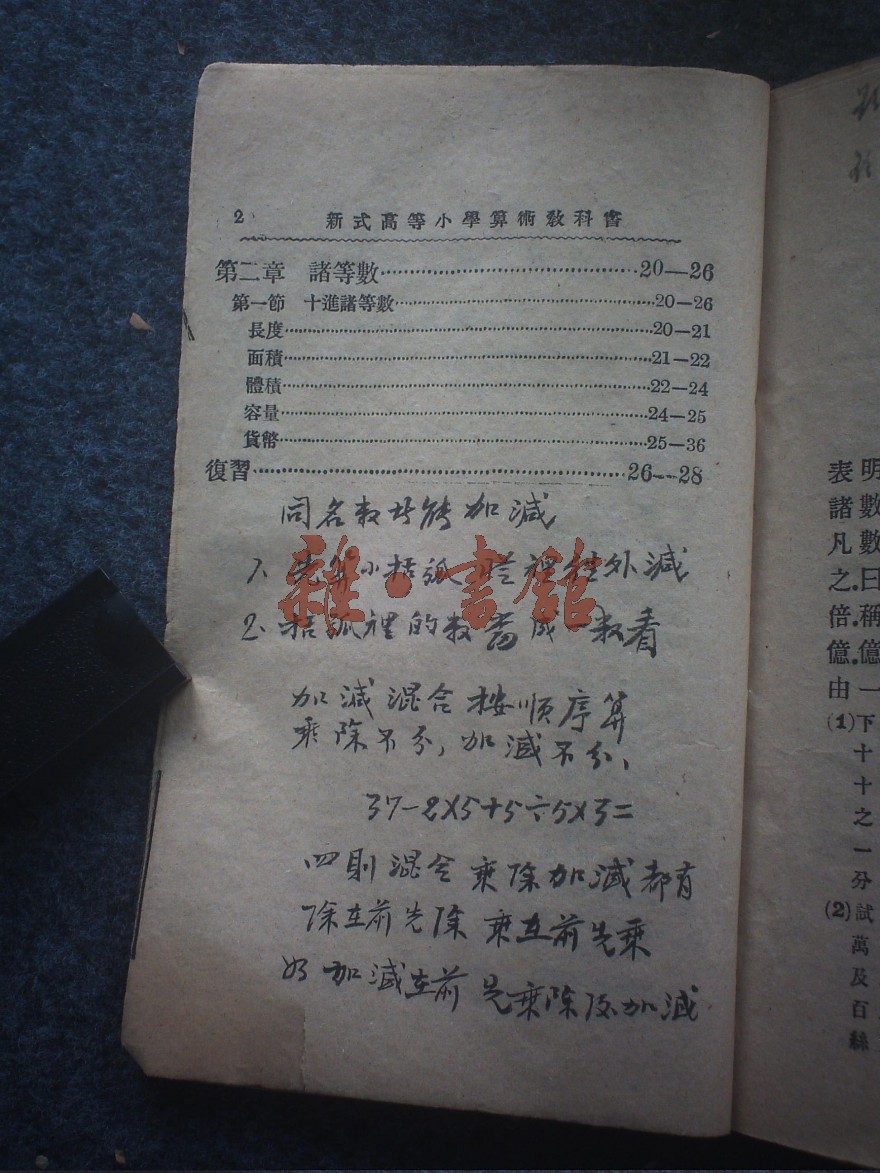 2 新式高等小學算術敎科書
第二章 諸等數……20—26
第一節 十進諸等數……20—26
長度……20—21
面積……21—22
體積……22—24
容量……24—25
貨幣……25—36
復習……26—28
同名数才能加減
1、先算小括弧 裡 外減
2、括弧裡的数當成一数看
加減混合按順序算
乘除不分,加減不分、
37-2×5+5÷5×3=
四則混合乘除加減都有
除在前先除 乘在前先乘
如加減在前 先乘除后加減
雜·書館
明數曰稱億一
表諸凡之倍億由
(1)下十十之一分
(2)試萬及百絲